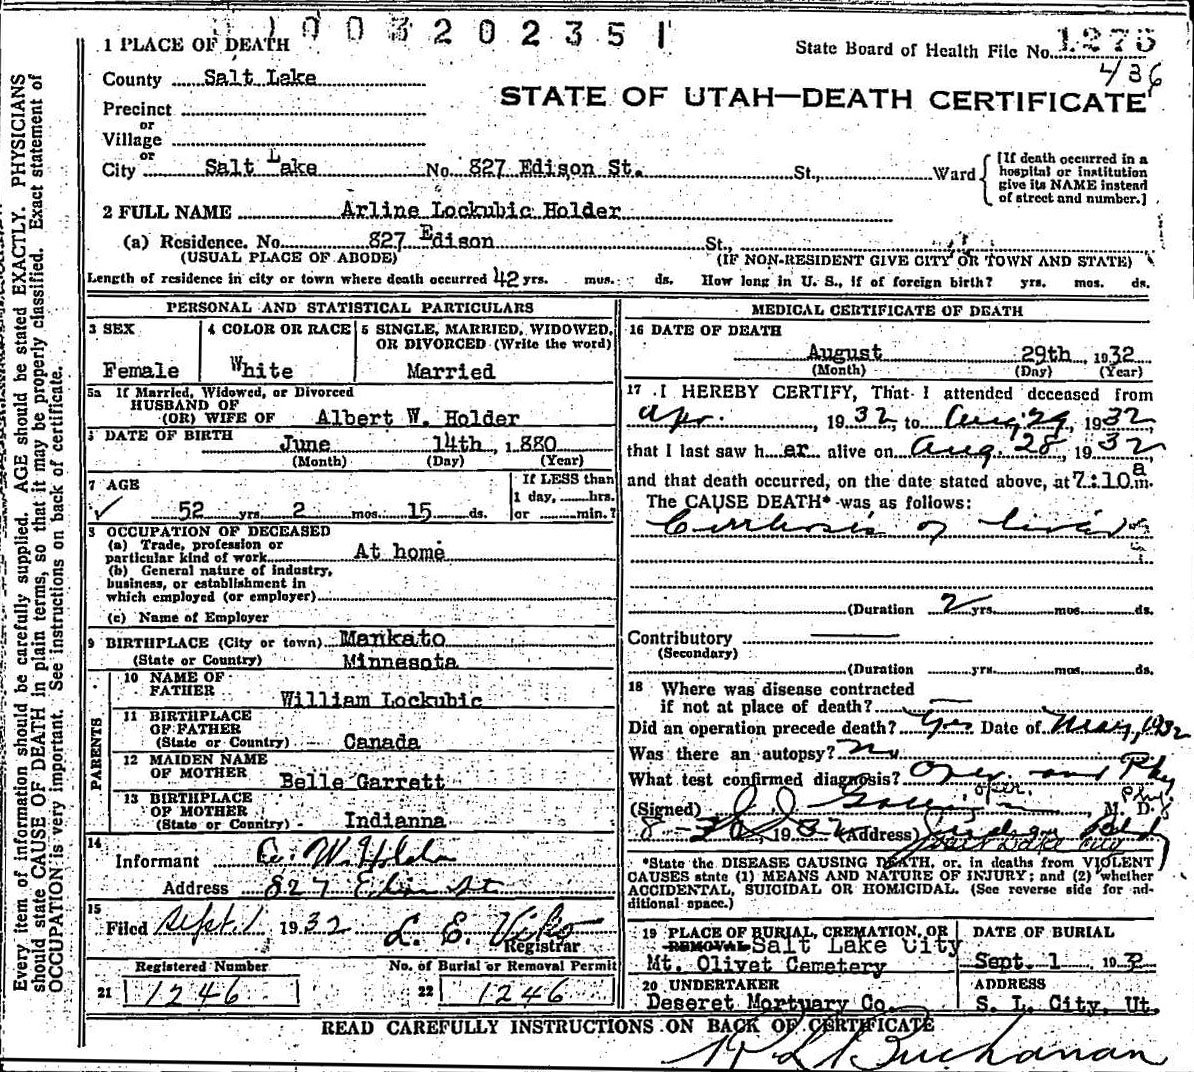 1003202351
1 PLACE OF DEATH
State Board of Health File No. 1275
436
County Salt Lake
STATE OF UTAH—DEATH CERTIFICATE
Precinct
or
Village
or
City Salt Lake No. 827 Edison St. St., Ward
[If death occurred in a hospital or institution give its NAME instead of street and number.]
2 FULL NAME Arline Lockubic Holder
(a) Residence. No. 827 Edison St.,
(USUAL PLACE OF ABODE) (IF NON-RESIDENT GIVE CITY OR TOWN AND STATE)
Length of residence in city or town where death occurred 42 yrs. mos. ds. How long in U. S., if of foreign birth? yrs. mos. ds.
PERSONAL AND STATISTICAL PARTICULARS
3 SEX
Female
4 COLOR OR RACE
White
5 SINGLE, MARRIED, WIDOWED,
OR DIVORCED (Write the word)
Married
5a If Married, Widowed, or Divorced
HUSBAND OF
(OR) WIFE OF Albert W. Holder
DATE OF BIRTH
June 14th, 1880
(Month) (Day) (Year)
7 AGE
52 yrs. 2 mos. 15 ds.
If LESS than
1 day, hrs.
or min.?
8 OCCUPATION OF DECEASED
(a) Trade, profession or
particular kind of work At home
(b) General nature of industry,
business, or establishment in
which employed (or employer)
(c) Name of Employer
9 BIRTHPLACE (City or town) Mankato
(State or Country) Minnesota
PARENTS
10 NAME OF
FATHER
William Lockubic
11 BIRTHPLACE
OF FATHER
(State or Country) Canada
12 MAIDEN NAME
OF MOTHER
Belle Garrett
13 BIRTHPLACE
OF MOTHER
(State or Country) Indianna
14
Informant A. W. Holder
Address 827 Edison St
15
Filed Sept. 1 1932 L. E. Viko
Registrar
Registered Number No. of Burial or Removal Permit
21 1246 22 1246
MEDICAL CERTIFICATE OF DEATH
16 DATE OF DEATH
August 29th, 1932
(Month) (Day) (Year)
17 I HEREBY CERTIFY, That I attended deceased from
Apr. , 1932, to Aug. 29, 1932,
that I last saw her alive on Aug. 28, 1932,
and that death occurred, on the date stated above, at 7:10 a m.
The CAUSE DEATH* was as follows:
Cirrhosis of liver
(Duration 2 yrs. mos. ds.
Contributory
(Secondary)
(Duration yrs. mos. ds.
18 Where was disease contracted
if not at place of death?
Did an operation precede death? Yes Date of May, 1932
Was there an autopsy? No
What test confirmed diagnosis? Oper. and Phy
oper. Phy.
(Signed) M. D.
8-30, 1932 (Address) Judge Bld
Salt Lake City
*State the DISEASE CAUSING DEATH, or, in deaths from VIOLENT
CAUSES state (1) MEANS AND NATURE OF INJURY; and (2) whether
ACCIDENTAL, SUICIDAL OR HOMICIDAL. (See reverse side for ad-
ditional space.)
19 PLACE OF BURIAL, CREMATION, OR
REMOVAL Salt Lake City
Mt. Olivet Cemetery
DATE OF BURIAL
Sept. 1 1932
20 UNDERTAKER
Deseret Mortuary Co.
ADDRESS
S. L. City, Ut.
READ CAREFULLY INSTRUCTIONS ON BACK OF CERTIFICATE
Buchanan
Every item of information should be carefully supplied. AGE should be stated EXACTLY. PHYSICIANS
should state CAUSE OF DEATH in plain terms, so that it may be properly classified. Exact statement of
OCCUPATION is very important. See instructions on back of certificate.